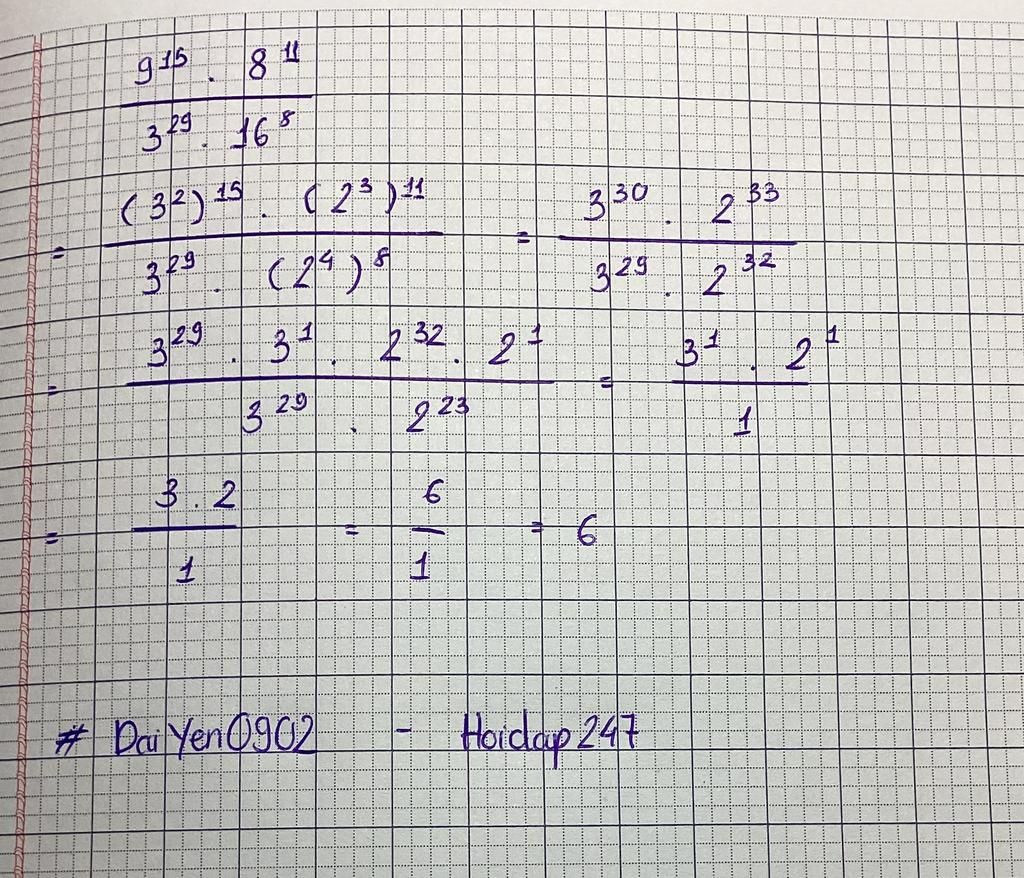 9^15 . 8^11
3^29 . 16^8
= (3^2)^15 . (2^3)^11 / 3^29 . (2^4)^8 = 3^30 . 2^33 / 3^29 . 2^32
= 3^29 . 3^1 . 2^32 . 2^1 / 3^29 . 2^23 = 3^1 . 2^1 / 1
= 3 . 2 / 1 = 6 / 1 = 6
# DaiYen0902 - Hoidap247